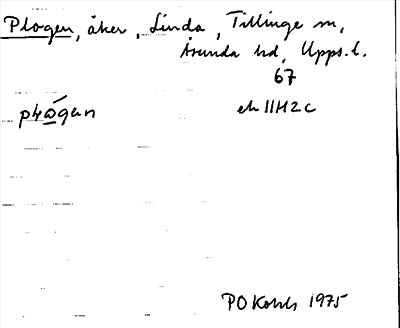 Plogen, åker, Linda, Tillinge sn,
Åsunda hd, Upps. l.
67
plógen ek 11H2c
PO 1975